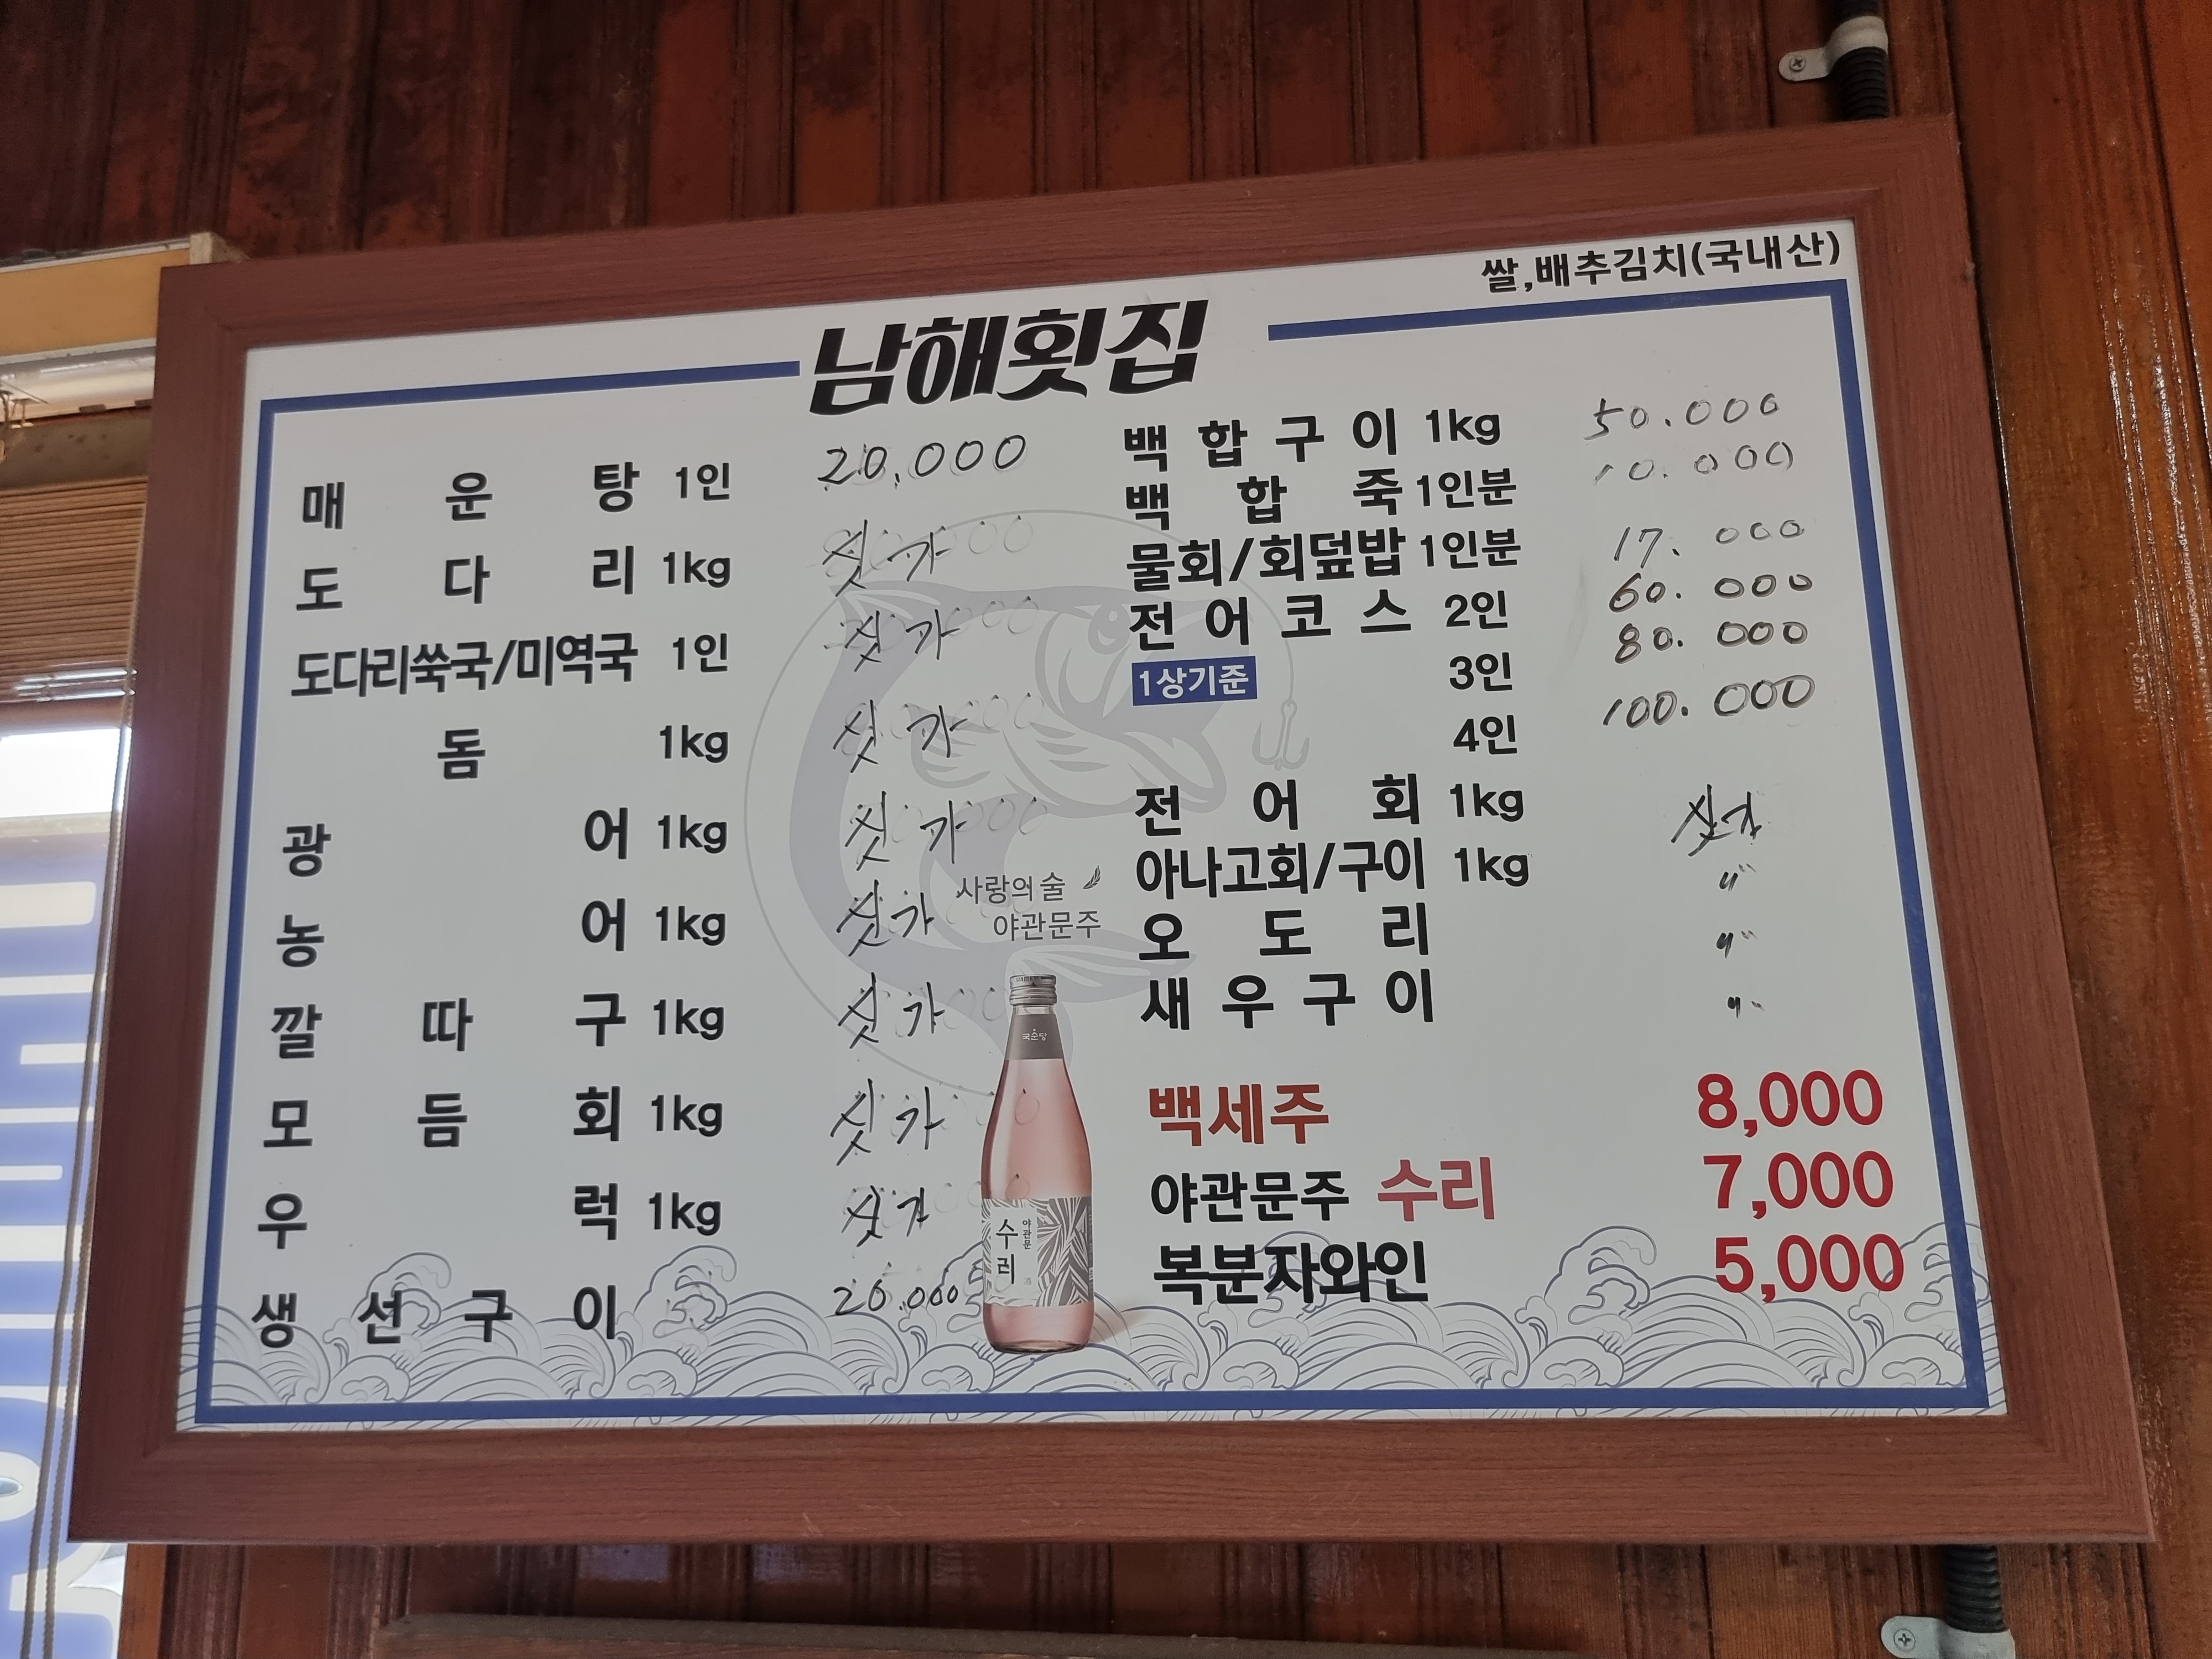 쌀,배추김치(국내산)
남해횟집
매운탕 1인 20,000
도다리 1kg 싯가
도다리쑥국/미역국 1인 싯가
돔 1kg 싯가
광어 1kg 싯가
농어 1kg 싯가
깔따구 1kg 싯가
모듬회 1kg 싯가
우럭 1kg 싯가
생선구이 20.000
사랑의 술
야관문주
국순당
야관문
수리
백합구이 1kg 50.000
백합죽 1인분 10.000
물회/회덮밥 1인분 17.000
전어코스 2인 60.000
1상기준 3인 80.000
4인 100.000
전어회 1kg 싯가
아나고회/구이 1kg 〃
오도리 〃
새우구이 〃
백세주 8,000
야관문주 수리 7,000
복분자와인 5,000